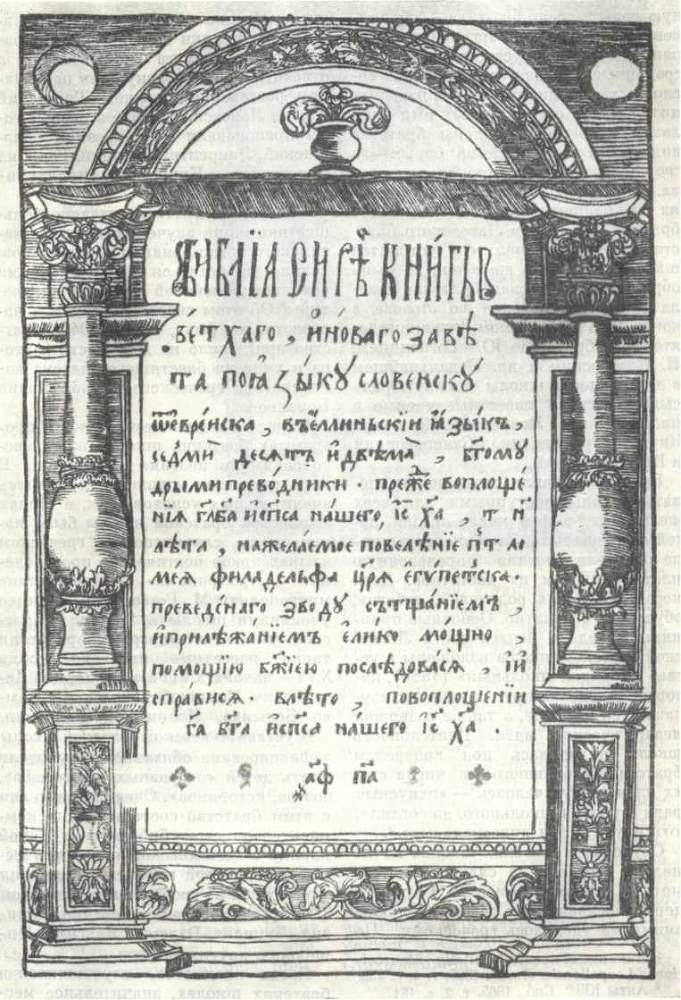 БИБЛІА СИРѢЧЬ КНИГЫ
ВЕТХАГО, И НОВАГО ЗАВѢ
ТА ПОꙖЗЫКУ СЛОВЕНСКУ
ѿеврейска, въеллиньскїи ꙗзыкъ,
седмїдесятъ идвѣма, бг҃ому
дрыми преводники. преже воплоще
нїя гд҃а бг҃а ис҃пса нашего, іс҃ х҃а, т҃ и҃
лѣта, нажелаемое повелѣнїе пт҃ло
мея филаделфа цр҃я егупетска.
преведенаго зводу сътщанїемъ,
иприлѣжанїемъ елико мощно,
помощїю бж҃їею послѣдовася, ии
справися. влѣто, повоплощенїи
гд҃а бг҃а ис҃пса нашего іс҃ х҃а
҂аф҃ па҃